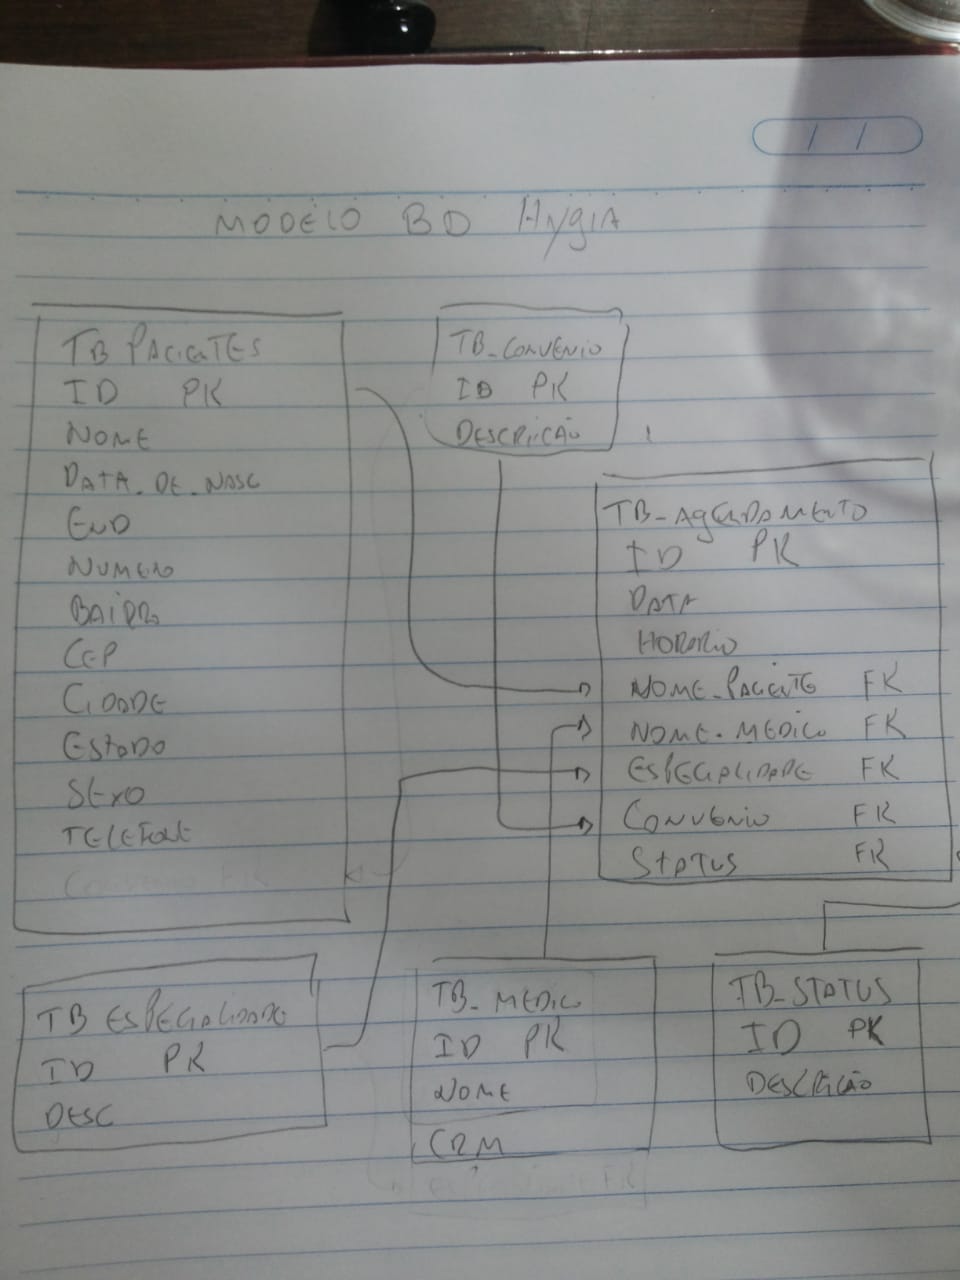 MODELO BD Hygia
TB PACIENTES
ID PK
NOME
DATA_DE_NASC
END
NUMERO
BAIRRO
CEP
CIDADE
ESTADO
SEXO
TELEFONE
TB_CONVENIO
ID PK
DESCRIÇÃO
TB_AGENDAMENTO
ID PK
DATA
HORARIO
NOME_PACIENTE FK
NOME_MEDICO FK
ESPECIALIDADE FK
CONVENIO FK
STATUS FK
TB ESPECIALIDADE
ID PK
DESC
TB_MEDICO
ID PK
NOME
CRM
TB_STATUS
ID PK
DESCRIÇÃO